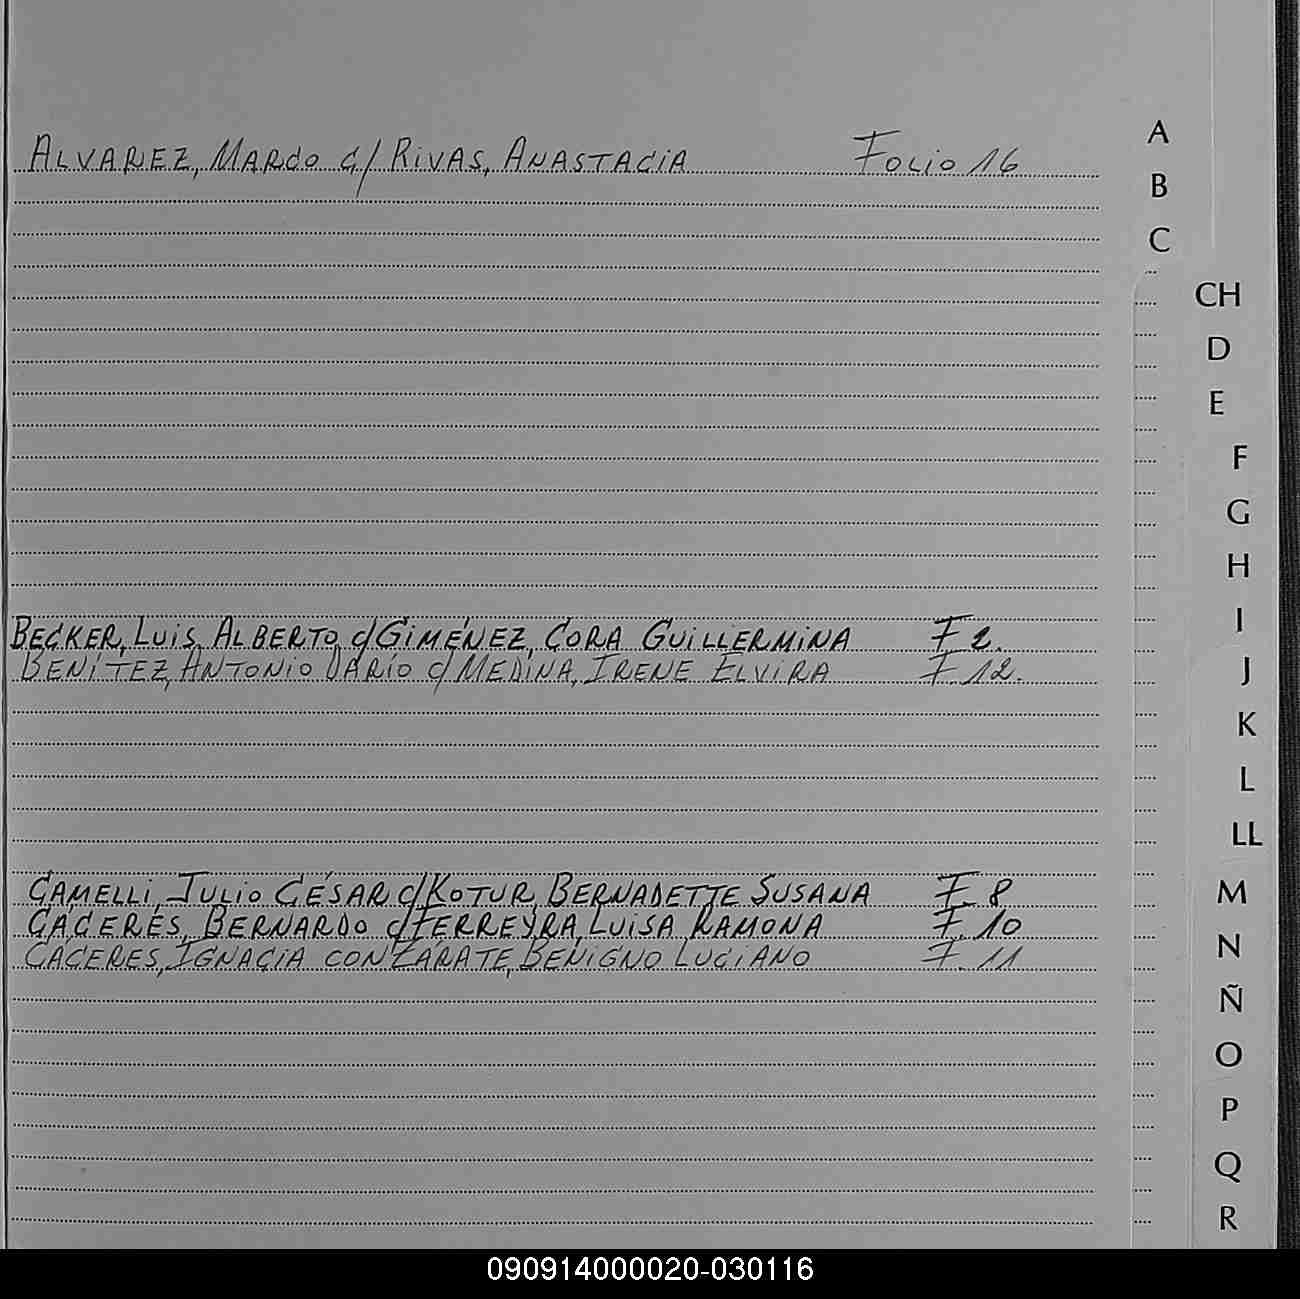 ALVAREZ, MARCO c/ RIVAS, ANASTACIA FOLIO 16
BECKER, LUIS ALBERTO c/ GIMÉNEZ, CORA GUILLERMINA F 2.
BENÍTEZ, ANTONIO DARÍO c/ MEDINA, IRENE ELVIRA F. 12.
CAMELLI, JULIO CÉSAR c/ KOTUR, BERNADETTE SUSANA F. 8
CÁCERES, BERNARDO c/ FERREYRA, LUISA RAMONA F. 10
CÁCERES, IGNACIA CON ZÁRATE, BENIGNO LUCIANO F. 11
A
B
C
CH
D
E
F
G
H
I
J
K
L
LL
M
N
Ñ
O
P
Q
R
090914000020-030116